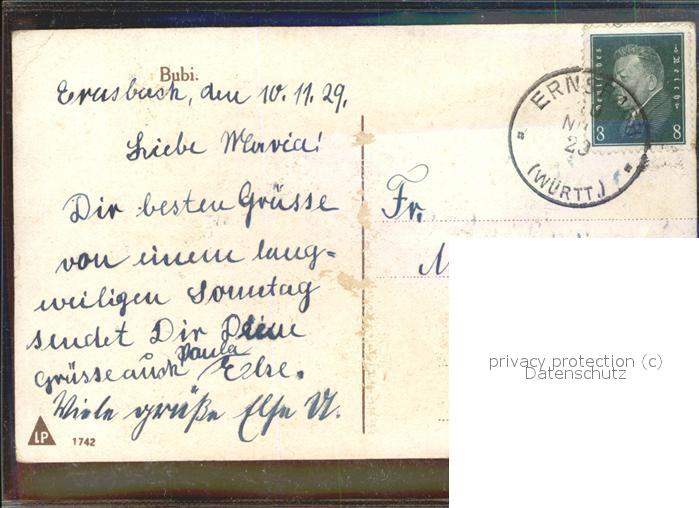 Bubi.
Ernsbach, den 10.11.29.
Liebe Maria!
Die besten Grüsse
von einem lang=
weiligen Sonntag
sendet Dir Deine
Paula
Grüsse auch Else.
Viele grüße Else U.
LP 1742
Fr.
M
ERNSBACH
NOV
29
(WÜRTT.)
Deutsches Reich
8 8
privacy protection (c)
Datenschutz